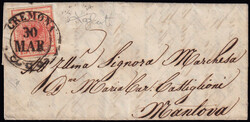 CREMONA
30
MAR.
All'Illma Signora Marchesa
Dna Maria Cav. Castiglioni
Mantova